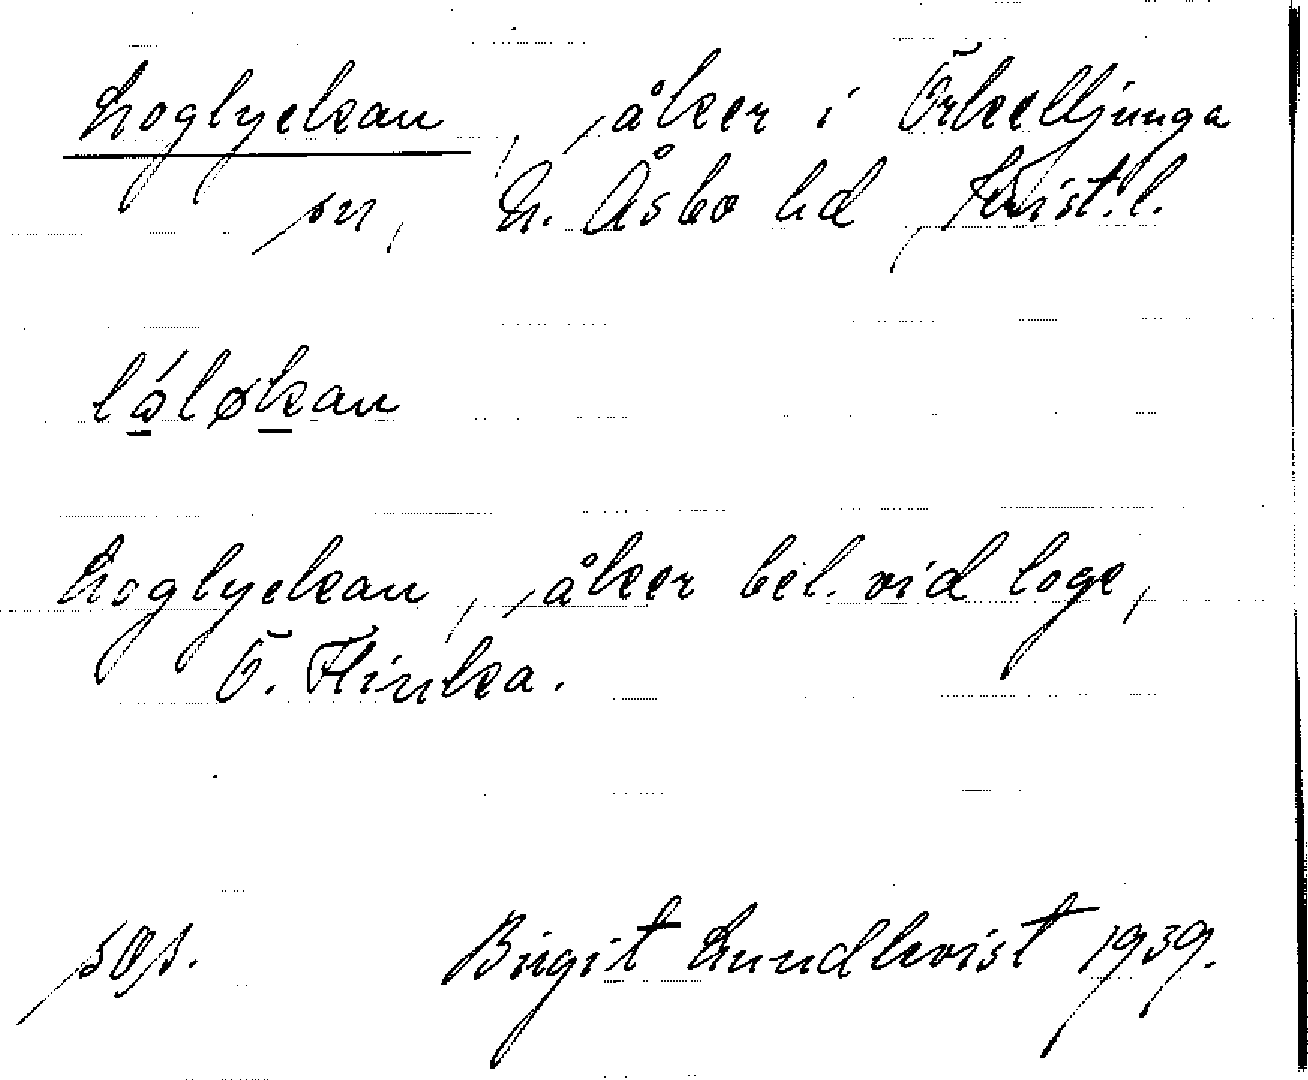 Loglyckan, åker i Örkelljunga
sn, N. Åsbo hd, Krist. l.
lóløkan
Loglyckan, åker bel. vid loge,
Ö. Flinka.
Birgit Lundkvist 1939.